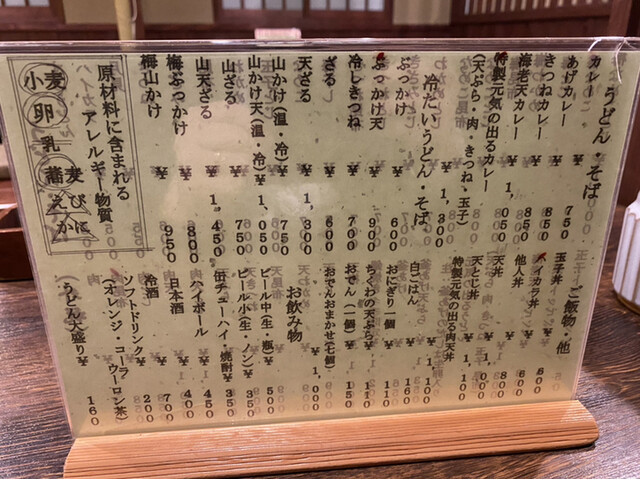 うどん・そば
カレー ¥ 750
あげカレー ¥ 850
きつねカレー ¥ 850
海老天カレー ¥ 1,050
特製元気の出るカレー ¥ 1,300
(天ぷら・肉・きつね・玉子)
冷たいうどん・そば
ぶっかけ ¥ 600
ぶっかけ天 ¥ 900
冷しきつね ¥ 700
ざる ¥ 600
天ざる ¥ 1,300
山かけ(温・冷) ¥ 750
山かけ天(温・冷) ¥ 1,050
山ざる ¥ 750
山天ざる ¥ 1,450
梅ぶっかけ ¥ 800
梅山かけ ¥ 950
原材料に含まれる
アレルギー物質
小麦
卵
乳
蕎麦
えび
かに
ご飯物・他
玉子丼
ハイカラ丼
他人丼
天丼
天とじ丼
特製元気の出る肉天丼
白ごはん
おにぎり一個
ちくわの天ぷら
おでん(一個) ¥ 150
おでんおまかせ(七個) ¥ 1,000
お飲み物
ビール中(生・瓶) ¥ 500
ビール小(生・ノン) ¥ 350
缶チューハイ・焼酎 ¥ 350
ハイボール ¥ 450
日本酒 ¥ 400
冷酒 ¥ 700
ソフトドリンク ¥ 200
(オレンジ・コーラ
ウーロン茶)
(うどん大盛り) ¥ 160